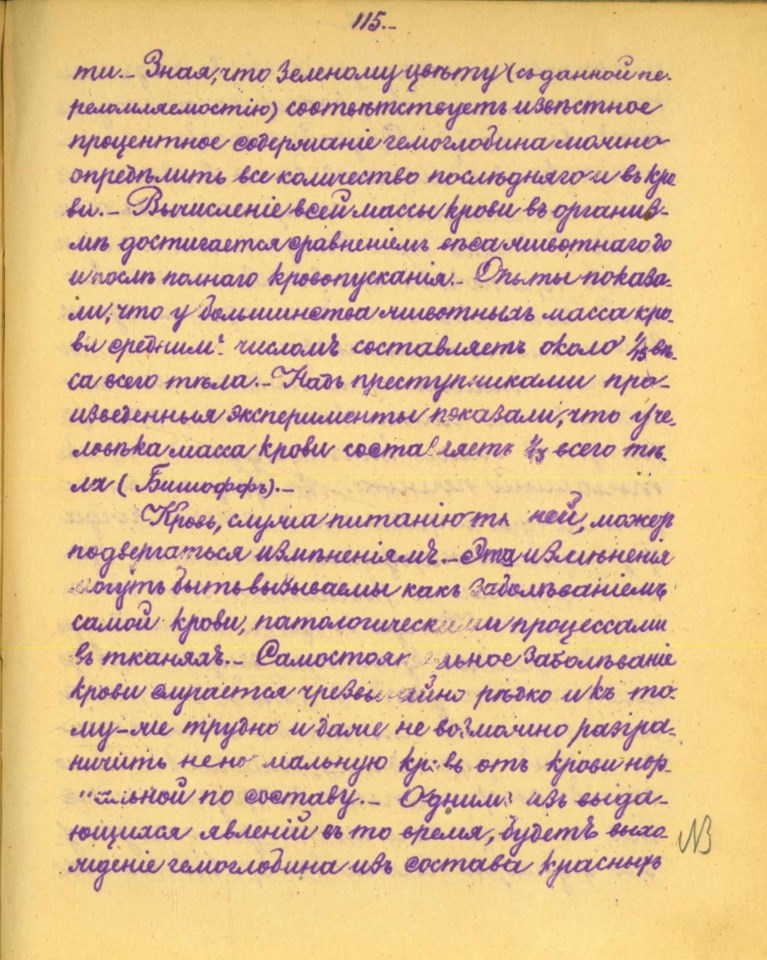 115.-
ти.- Зная, что зеленому цвѣту (съ данной пе-
реломляемостію) соотвѣтствуетъ извѣстное
процентное содержаніе гемоглобина можно
опредѣлить все количество послѣдняго и въ кро
ви.- Вычисленіе всей массы крови въ организ-
мѣ достигается сравненіемъ вѣса животнаго до
и послѣ полнаго кровопусканія.- Опыты показа-
ли, что у большинства животныхъ масса кро-
ви среднимъ числомъ составляетъ около 1/13 вѣ-
са всего тѣла.- Надъ преступниками про-
изведенныя эксперименты показали, что у че-
ловѣка масса крови составляетъ 1/13 всего тѣ-
ла (Бишоффъ).-
Кровь, служа питанію тканей, можетъ
подвергаться измѣненіямъ.- Эти измѣненія
могутъ быть вызываемы какъ заболѣваніемъ
самой крови, патологическими процессами
въ тканяхъ.- Самостоятельное заболѣваніе
крови случается чрезвычайно рѣдко и къ то-
му-же трудно и даже не возможно разгра-
ничить ненормальную кровь отъ крови нор-
мальной по составу.- Однимъ изъ выда-
ющихся явленій въ то время, будетъ выхо
жденіе гемоглобина изъ состава красныхъ
NB